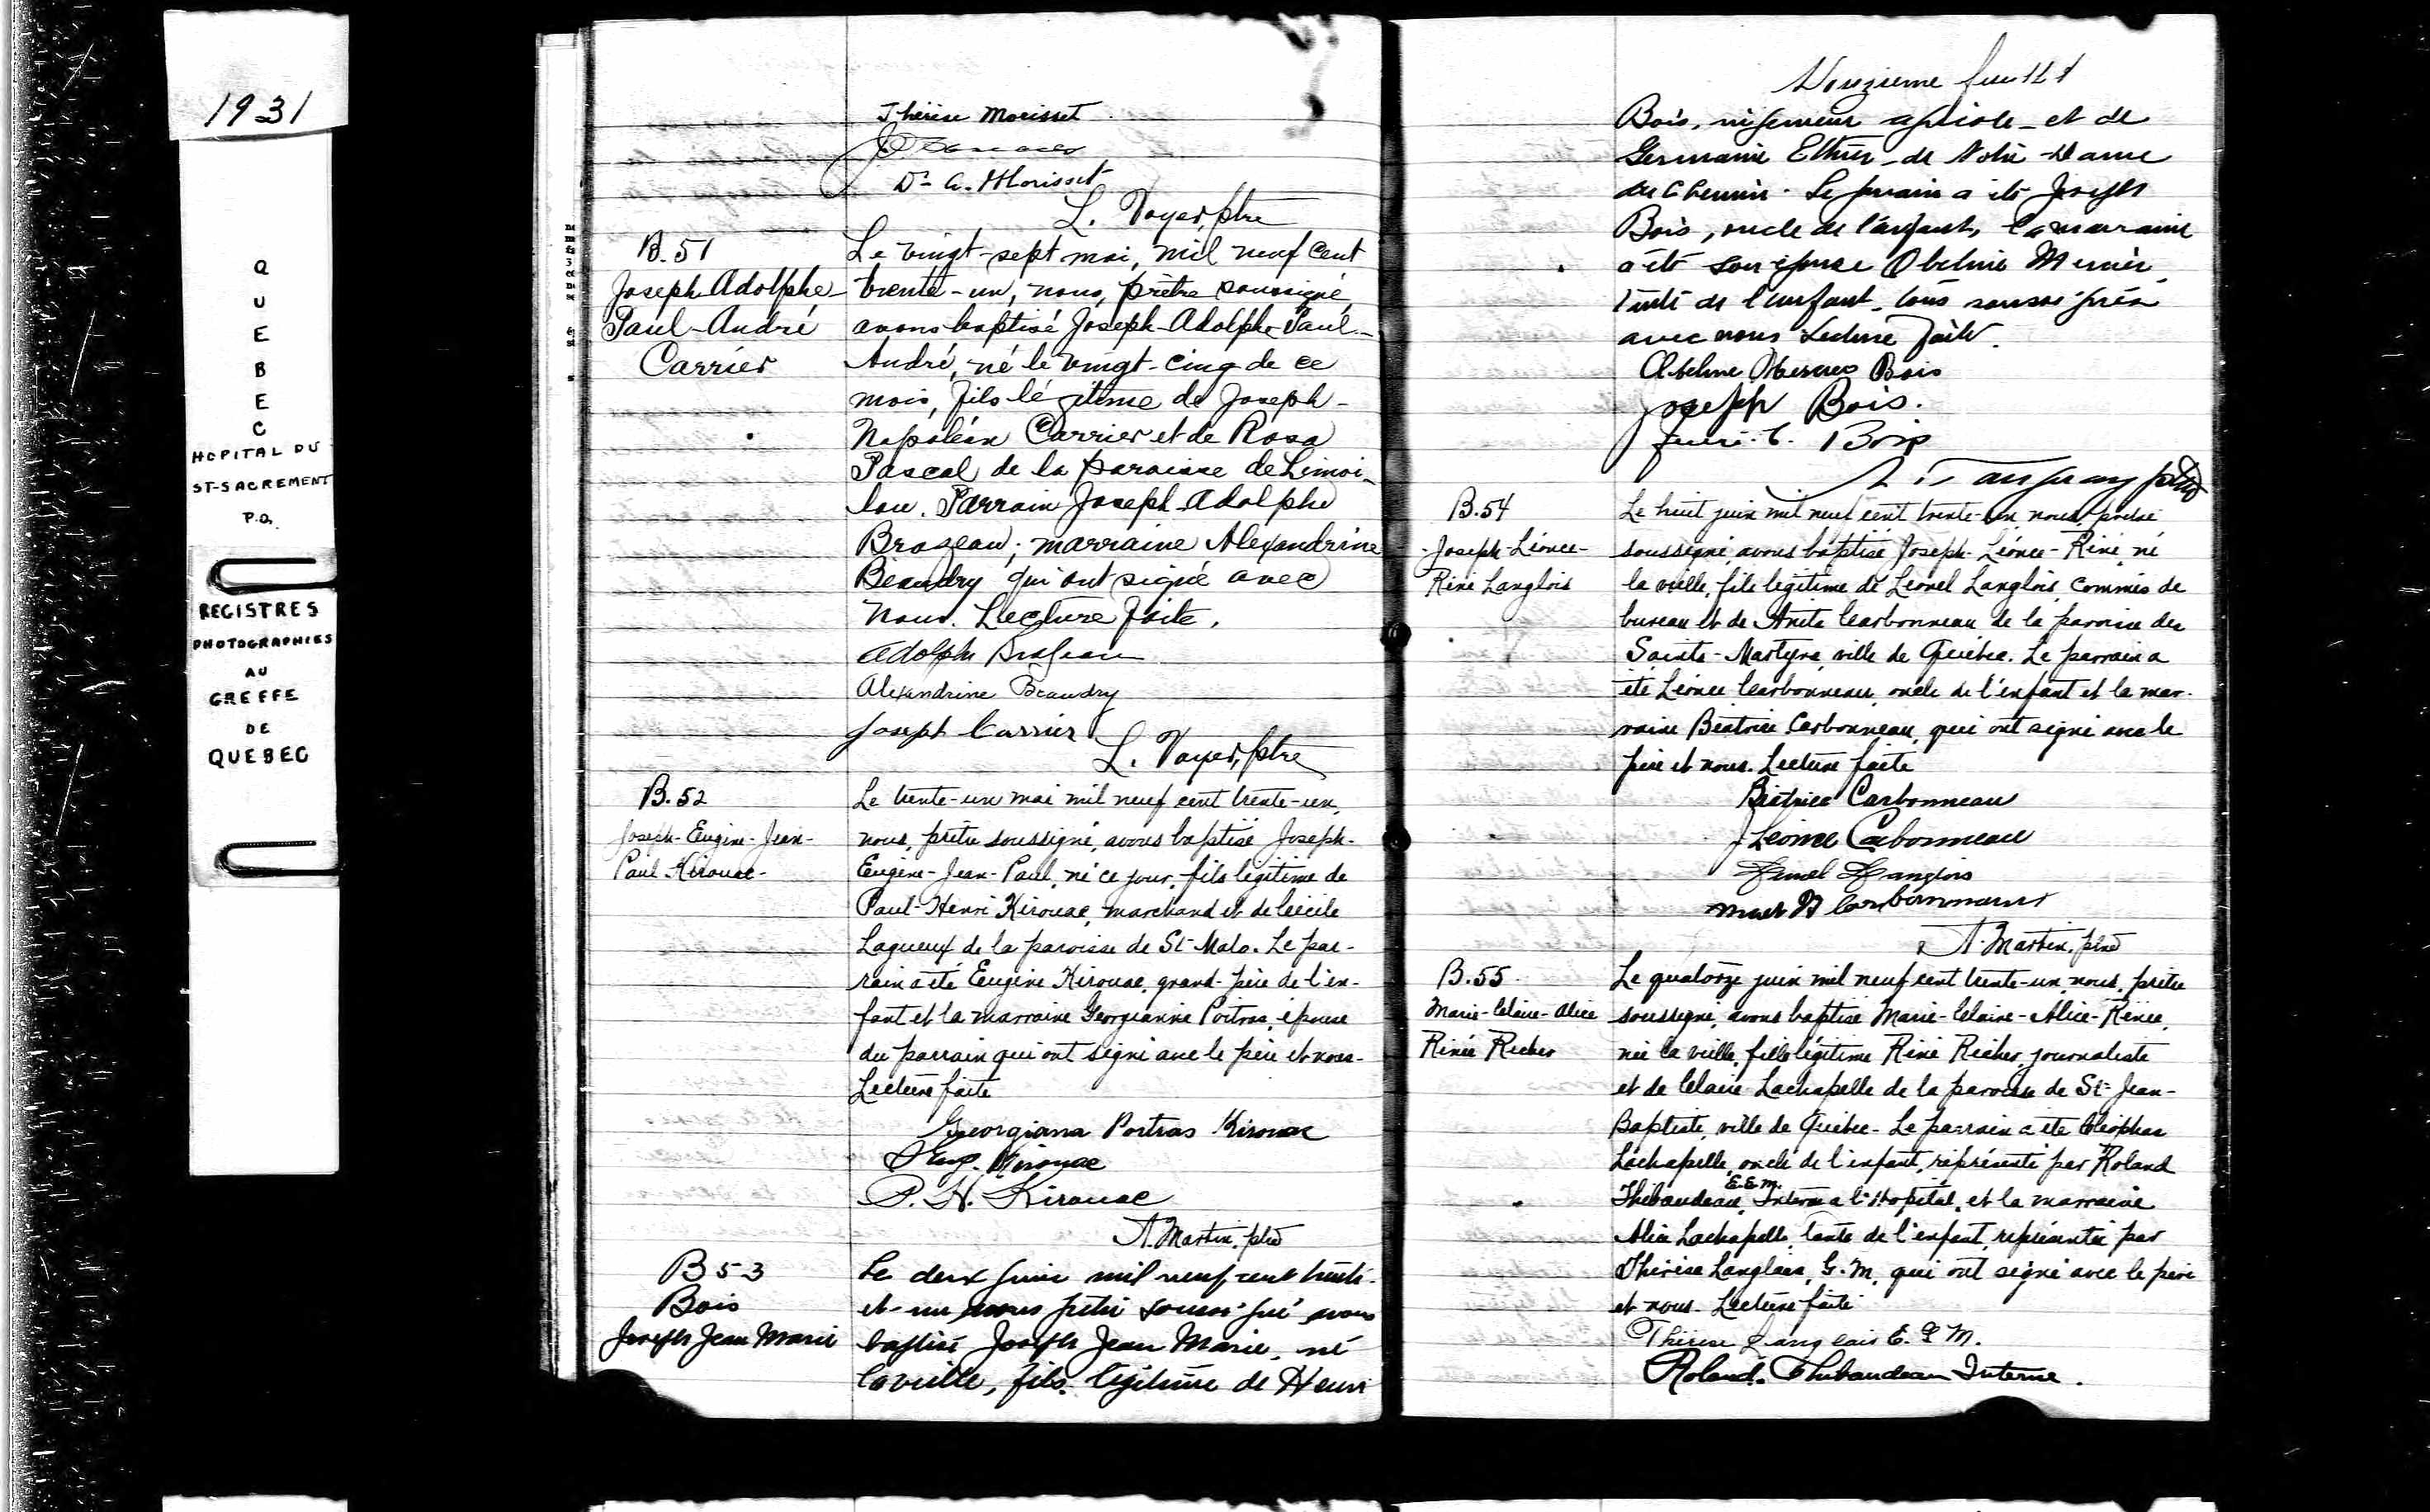 1931
Q
U
E
B
E
C
HOPITAL DU
ST-SACREMENT
P.Q.
REGISTRES
PHOTOGRAPHIES
AU
GREFFE
DE
QUEBEC
Thérèse Morisset
Dr A. Morisset
L. Voyer, ptre
B.51
Joseph Adolphe
Paul-André
Carrier
Le vingt-sept mai, mil neuf cent
trente-un, nous, prêtre soussigné,
avons baptisé Joseph-Adolphe-Paul-
André, né le vingt-cinq de ce
mois, fils légitime de Joseph-
Napoléon Carrier et de Rosa
Pascal de la paroisse de Limoi-
lou. Parrain Joseph-Adolphe
Brazeau; marraine Alexandrine
Beaudry qui ont signé avec
nous. Lecture faite.
Adolphe Brazeau
Alexandrine Beaudry
Joseph Carrier
L. Voyer, ptre
B.52
Joseph-Eugène-Jean-
Paul Kirouac-
Le trente-un mai mil neuf cent trente-un,
nous, prêtre soussigné, avons baptisé Joseph-
Eugène-Jean-Paul, né ce jour, fils légitime de
Paul-Henri Kirouac, marchand et de Cécile
Lagueux de la paroisse de St-Malo. Le par-
rain a été Eugène Kirouac, grand-père de l'en-
fant et la marraine Georgianna Poitras, épouse
du parrain qui ont signé avec le père et nous-
Lecture faite
Georgiana Poitras Kirouac
Eug. Kirouac
P. H. Kirouac
A. Martin, ptre
B 53
Bois
Joseph Jean Marie
Le deux juin mil neuf cent trente-
et-un nous prêtre soussigné avons
baptisé Joseph Jean Marie, né
la veille, fils légitime de Henri
Douzième feuillet
Bois, ingénieur agricole et de
Germaine Ethier de Notre-Dame
du Chemin. Le parrain a été Joseph
Bois, oncle de l'enfant, la marraine
a été son épouse Obeline Mercier,
tante de l'enfant, tous soussignés
avec nous Lecture faite.
Obeline Mercier Bois
Joseph Bois.
Bois
B.54
-Joseph-Léonce-
René Langlois
Le huit juin mil neuf cent trente-un, nous, prêtre
soussigné, avons baptisé Joseph-Léonce-René, né
la veille, fils légitime de Léonel Langlois, commis de
bureau et de Anita Carbonneau de la paroisse des
Saints-Martyrs, ville de Québec. Le parrain a
été Léonce Carbonneau, oncle de l'enfant et la mar-
raine Béatrice Carbonneau, qui ont signé avec le
père et nous. Lecture faite
Béatrice Carbonneau
Léonce Carbonneau
Lionel Langlois
Carbonneau
A. Martin, ptre
B.55
Marie-Claire-Alice
Renée Richer
Le quatorze juin mil neuf cent trente-un, nous, prêtre
soussigné, avons baptisé Marie-Claire-Alice-Renée,
née la veille, fille légitime René Richer, journaliste
et de Claire Lachapelle de la paroisse de St-Jean-
Baptiste, ville de Québec- Le parrain a été Cléophas
Lachapelle, oncle de l'enfant, représenté par Roland
E.E.M.
Thibaudeau, Interne à l'Hôpital, et la marraine
Alice Lachapelle, tante de l'enfant, représentée par
Thérèse Langlais, G.M. qui ont signé avec le père
et nous- Lecture faite
Thérèse Langlais E.G.M.
Roland Thibaudeau Interne.